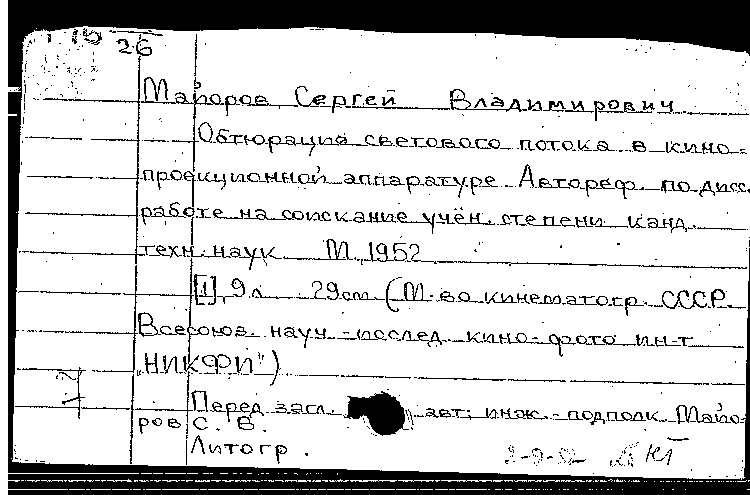 26
Майоров Сергей Владимирович
Обтюрация светового потока в кино-
проекционной аппаратуре. Автореф. по дисс.
работе на соискание учён. степени канд.
техн. наук М., 1952
[1], 9 л. 29 см. (М-во кинематогр. СССР.
Всесоюз. науч.-исслед. кино-фото ин-т
"НИКФИ")
Перед загл. авт: инж.-подполк. Майо-
ров С. В.
Литогр.